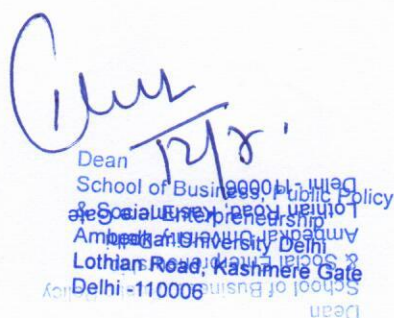 12/8
Dean
School of Business, Public Policy
& Social Enterpreneurship
Ambedkar University Delhi
Lothian Road, Kashmere Gate
Delhi -110006